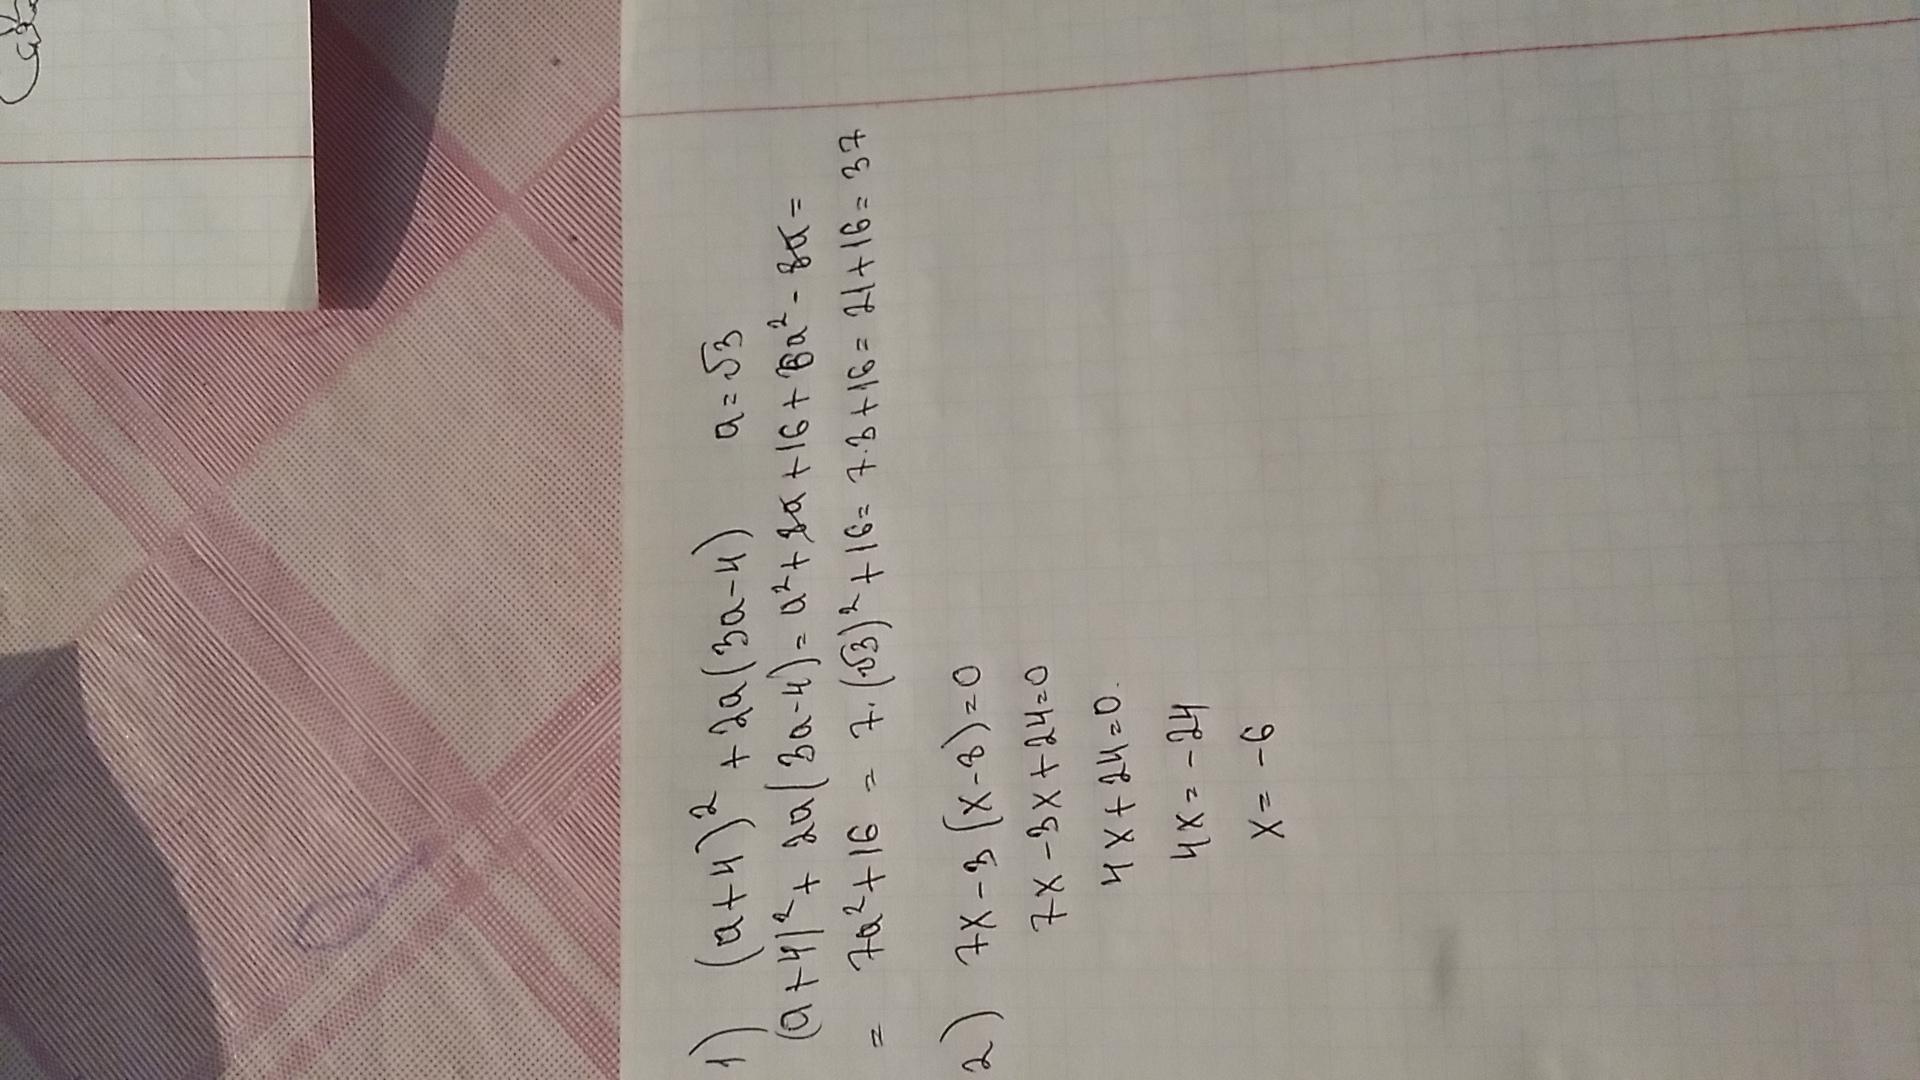 1) (a+4)² + 2a(3a-4) a=√3
(a+4)² + 2a(3a-4) = a² + 8a + 16 + 6a² - 8a =
= 7a² + 16 = 7·(√3)² + 16 = 7·3 + 16 = 21 + 16 = 37
2) 7x - 3(x-8) = 0
7x - 3x + 24 = 0
4x + 24 = 0.
4x = -24
x = -6